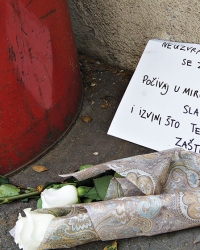 NEUZVRA
SE Z
POČIVAJ U MIR
SLA
I IZVINI ŠTO TE
ZAŠT